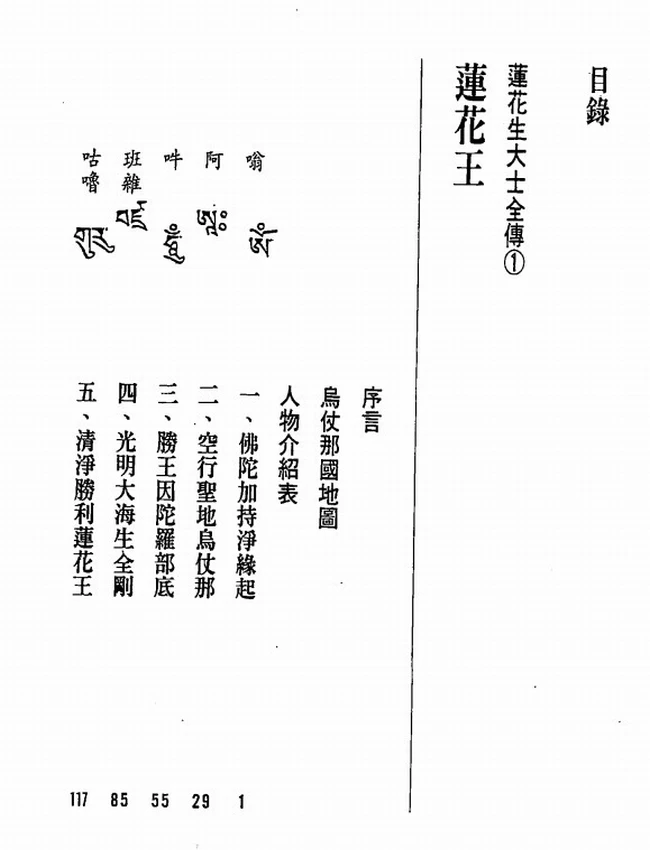 目錄
蓮花生大士全傳①
蓮花王
序言
烏仗那國地圖
人物介紹表
嗡 ཨོཾ
一、佛陀加持淨緣起 1
阿 ཨཱཿ
二、空行聖地烏仗那 29
吽 ཧཱུྃ
三、勝王因陀羅部底 55
班雜 བཛྲ
四、光明大海生全剛 85
咕嚕 གུརུ
五、清淨勝利蓮花王 117